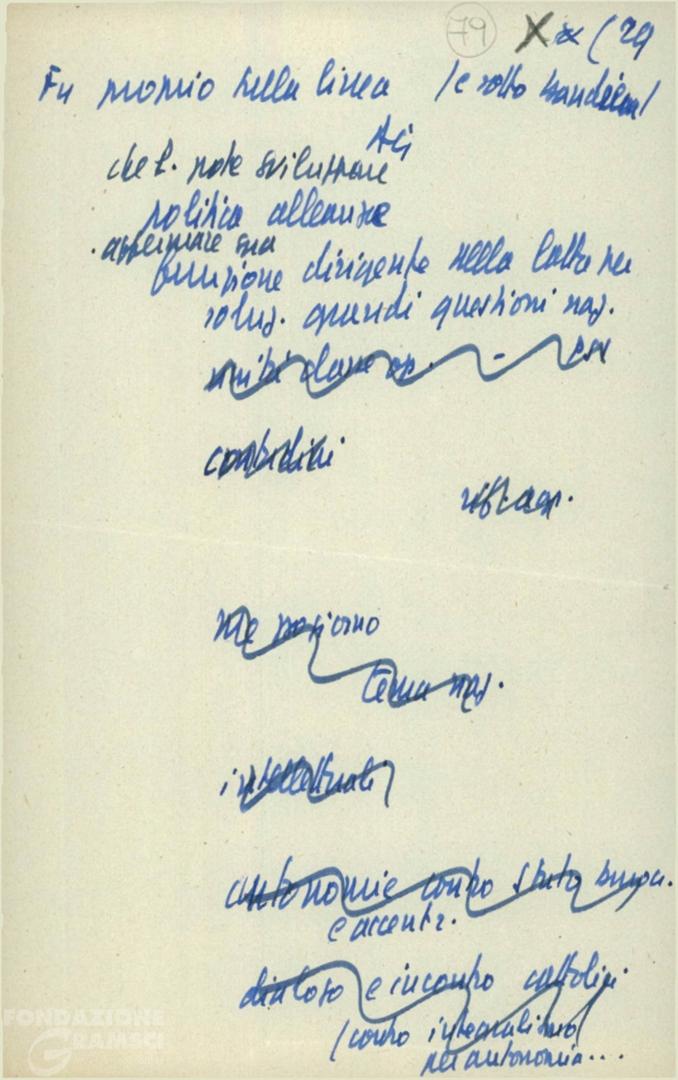 79 X x (29
Fu proprio sulla linea (e sotto bandiera)
che P. pote sviluppare
politica alleanze
affermare sua
funzione dirigente nella lotta per
soluz. grandi questioni naz.
unità classe op. -
contadini
rif. agr.
Mezzogiorno
tema naz.
intellettuali
autonomie contro Stato buroc.
e accentr.
dialogo e incontro cattolici
(contro integralismo)
per autonomia...
FONDAZIONE
GRAMSCI